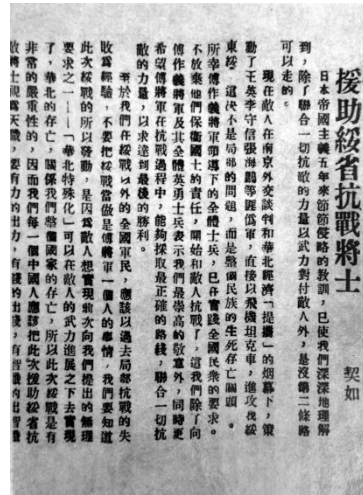 援助綏省抗戰將士
契如
日本帝國主義五年來節節侵略的教訓，已使我們深深地理解
到，除了聯合一切抗敵的力量以武力對付敵人外，是沒第二條路
可以走的。
現在敵人在南京外交談判和華北經濟「提攜」的烟幕下，策
動了王英李守信張海鵬等匪僞軍，直接以飛機坦克車，進攻我綏
東綏　這決不是局部的問題，而是整個民族的生死存亡關頭。
所幸傅作義將軍領導下的全體士兵，已在實踐全國民衆的要求。
不放棄他們保衞國土的責任，開始和敵人抗戰了，這我們除了向
傅作義將軍及其全體英勇士兵表示我們最崇高的敬意外，同時更
希望傅將軍在抗戰過程中，能夠採取最正確的路綫，聯合一切抗
敵的力量，以求達到最後的勝利。
至於我們在綏戰以外的全國軍民，應該以過去局部抗戰的失
敗爲經驗，不要把綏戰當做是傅將軍一個人的事情，我們要知道
此次綏戰的所以發動，是因爲敵人想實現前次向我們提出的無理
要求之一——「華北特殊化」可以在敵人的武力進展之下去實現
了，華北的存亡，關係我們整個國家的存亡，所以此次綏戰是有
非常的嚴重性的，因而我們每一個中國人應該把此次援助綏省抗
敵將士視爲天職，要有力的出力，有錢的出錢，有智識的出智識